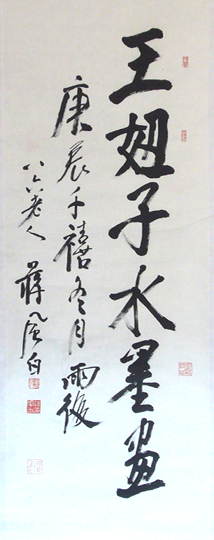 王妞子水墨画
庚辰千禧冬月雨後
八六老人 蒋风白